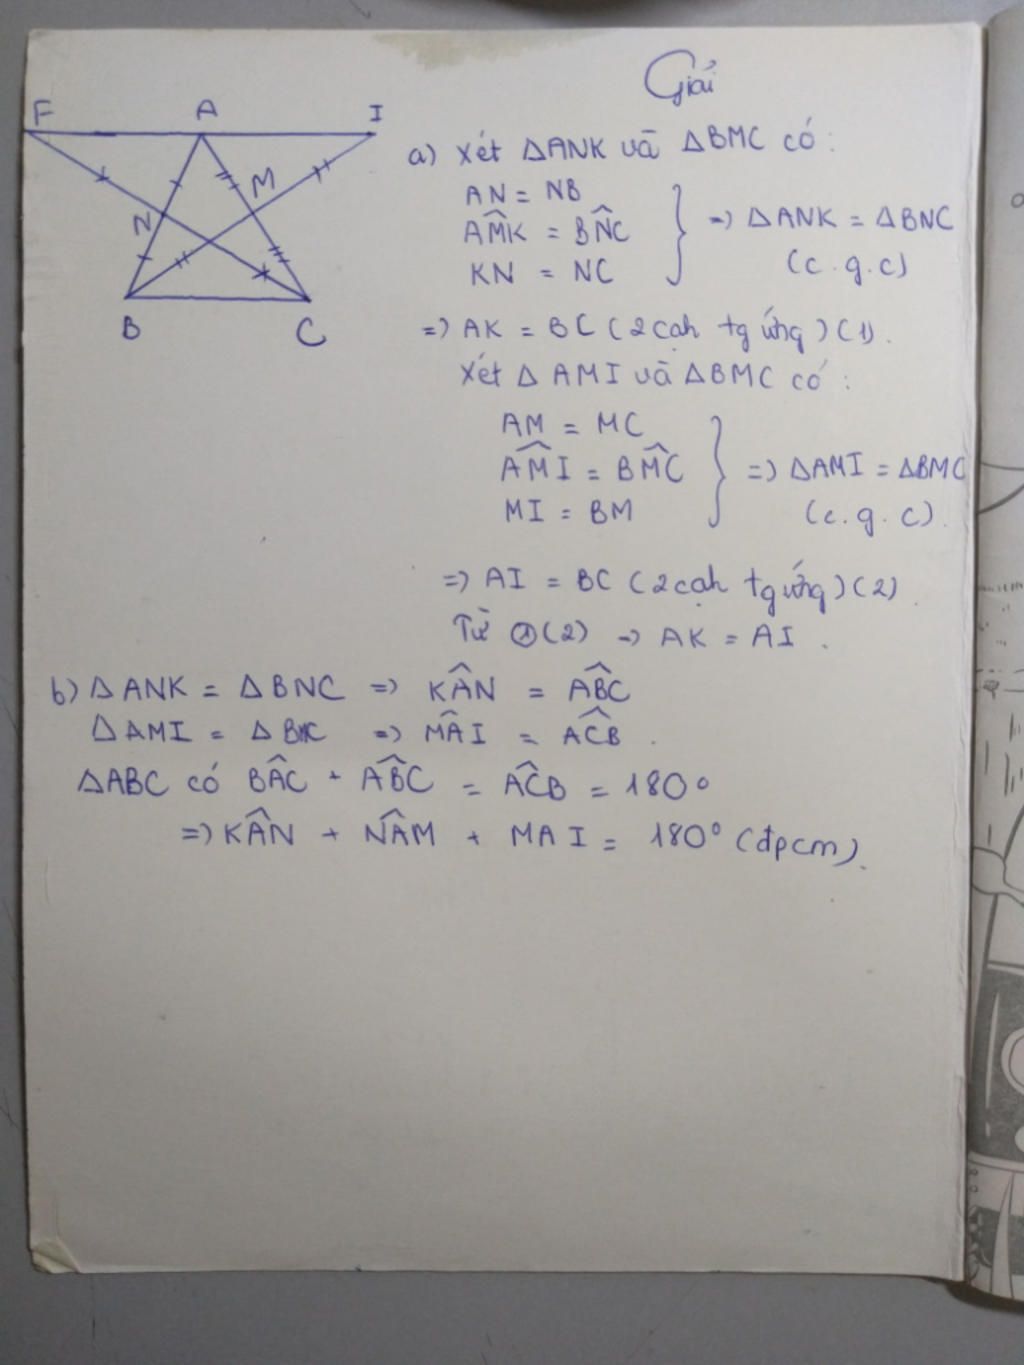 Giải
F A I
N M
B C
a) Xét ΔANK và ΔBMC có:
AN = NB
AM̂K = BN̂C } => ΔANK = ΔBNC
KN = NC (c.g.c)
=> AK = BC (2 cạh tg ứng) (1).
Xét Δ AMI và ΔBMC có:
AM = MC
AM̂I = BM̂C } => ΔAMI = ΔBMC
MI = BM (c.g.c).
=> AI = BC (2 cạh tg ứng) (2)
Từ ①(2) => AK = AI.
b) ΔANK = ΔBNC => KÂN = AB̂C
ΔAMI = ΔBMC => MÂI = AĈB.
ΔABC có BÂC + AB̂C = AĈB = 180°
=> KÂN + NÂM + MAI = 180° (đpcm).